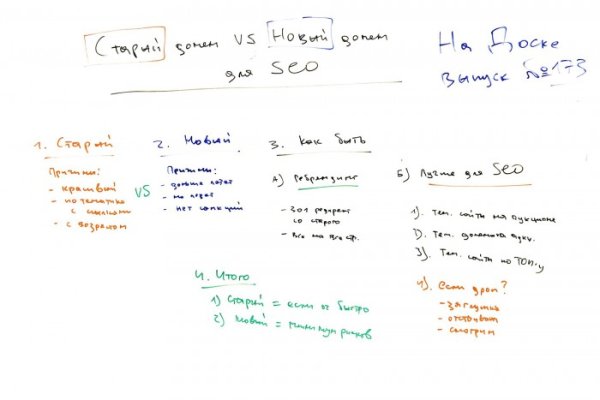 Старый домен VS Новый домен
для SEO
На Доске
выпуск №173
1. Старый
Причины:
- красивый
- по тематике
с ссылками
- с возрастом
VS
2. Новый
Причины:
- дольше
- не
- нет санкций
3. Как быть
А) Ребрендинг
- 301 редирект
со старого
- все на все стр.
Б) Лучше для SEO
1). Тем. сайты на аукционе
2). Тем. домены аукц.
3). Тем. сайты по ТОП-у
4). Если дроп?
- загрузка
- отстаиваем
- смотрим
4. Итого
1) Старый = если оч быстро
2) Новый = минимум рисков